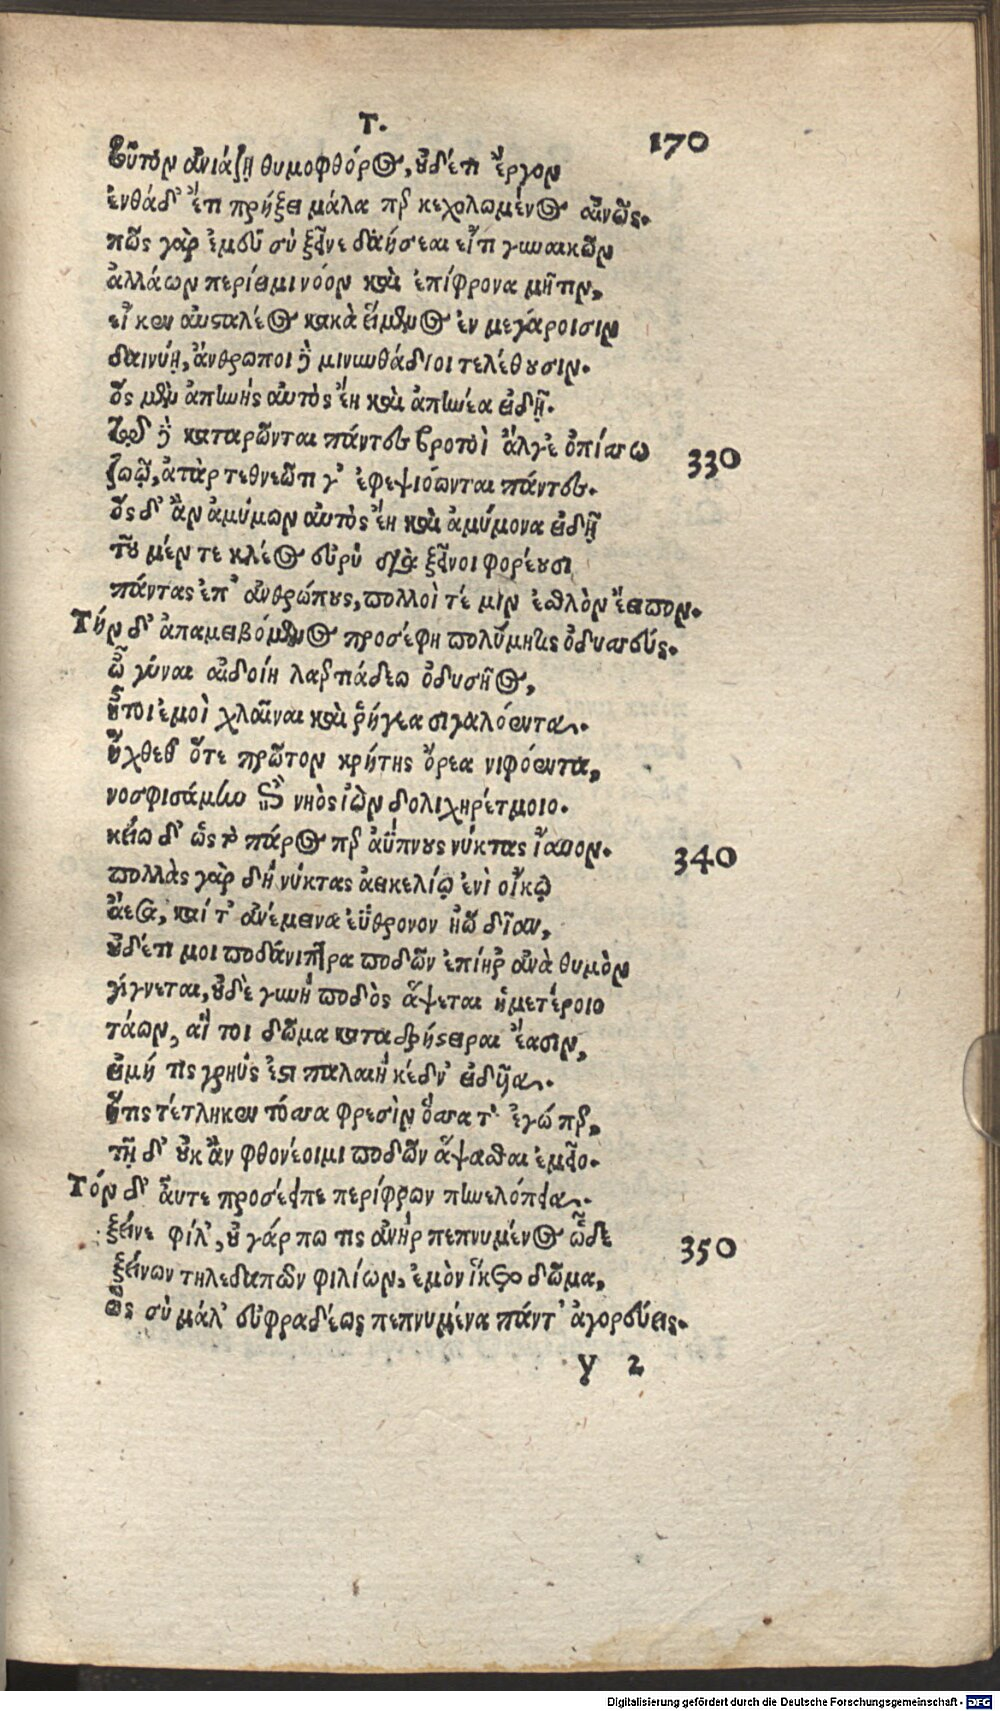 Τ. 170
τοῦτον ἀνιάζῃ θυμοφθόρος, οὐδέτι ἔργον
ἐνθάδ' ἔτι πρήξει μάλα περ κεχολωμένος αἰνῶς.
πῶς γὰρ ἐμεῦ σὺ ξεῖνε δαήσεαι εἴτι γυναικῶν
ἀλλάων περίειμι νόον καὶ ἐπίφρονα μῆτιν,
εἴ κεν ἀυσταλέος κακὰ εἵμενος ἐν μεγάροισιν
δαινύῃ, ἄνθρωποι δὲ μινυνθάδιοι τελέθουσιν.
ὃς μὲν ἀπηνὴς αὐτὸς ἔῃ καὶ ἀπηνέα εἰδῇ.
τῷδε δὲ καταρῶνται πάντες βροτοὶ ἄλγε ὀπίσσω 330
ζωῷ, ἀτὰρ τεθνεῶτι γ' ἐφεψιόωνται πάντες.
ὃς δ' ἂν ἀμύμων αὐτὸς ἔῃ καὶ ἀμύμονα εἰδῇ
τοῦ μέν τε κλέος εὐρὺ διὰ ξεῖνοι φορέουσι
πάντας ἐπ' ἀνθρώπους, πολλοὶ τέ μιν ἐσθλὸν ἔειπον.
Τὴν δ' ἀπαμειβόμενος προσέφη πολύμητις ὀδυσσεύς.
ὦ γύναι αἰδοίη λαερτιάδεω ὀδυσῆος,
ἤτοι ἐμοὶ χλαῖναι καὶ ῥήγεα σιγαλόεντα.
ἤχθεθ' ὅτε πρῶτον κρήτης ὄρεα νιφόεντα,
νοσφισάμην ἐπὶ νηὸς ἰὼν δολιχηρέτμοιο.
κείω δ' ὡς τὸ πάρος περ ἀΰπνους νύκτας ἴαυον. 340
πολλὰς γὰρ δὴ νύκτας ἀεικελίῳ ἐνὶ οἴκῳ
ἄεσα, καί τ' ἀνέμεινα ἐΰθρονον ἠῶ δῖαν,
οὐδέτι μοι ποδάνιπτρα ποδῶν ἐπίηρ ἀνὰ θυμὸν
γίγνεται, οὐδὲ γυνὴ ποδὸς ἅψεται ἡμετέροιο
τάων, αἵ τοι δῶμα καταδρήστειραι ἔασιν,
εἰμή τις γρηῦς ἔστι παλαιὴ κέδν' εἰδυῖα.
ἥτις τέτληκεν τόσσα φρεσὶν ὅσσα τ' ἐγώ περ,
τῇ δ' οὐκ ἂν φθονέοιμι ποδῶν ἅψασθαι ἐμεῖο.
Τὸν δ' αὖτε προσέειπε περίφρων πηνελόπεια.
ξεῖνε φίλ', οὐ γάρ πω τις ἀνὴρ πεπνυμένος ὧδε 350
ξείνων τηλεδαπῶν φιλίων, ἐμὸν ἵκετο δῶμα,
ὡς σὺ μάλ' εὐφραδέως πεπνυμένα πάντ' ἀγορεύεις.
y 2
Digitalisierung gefördert durch die Deutsche Forschungsgemeinschaft - DFG